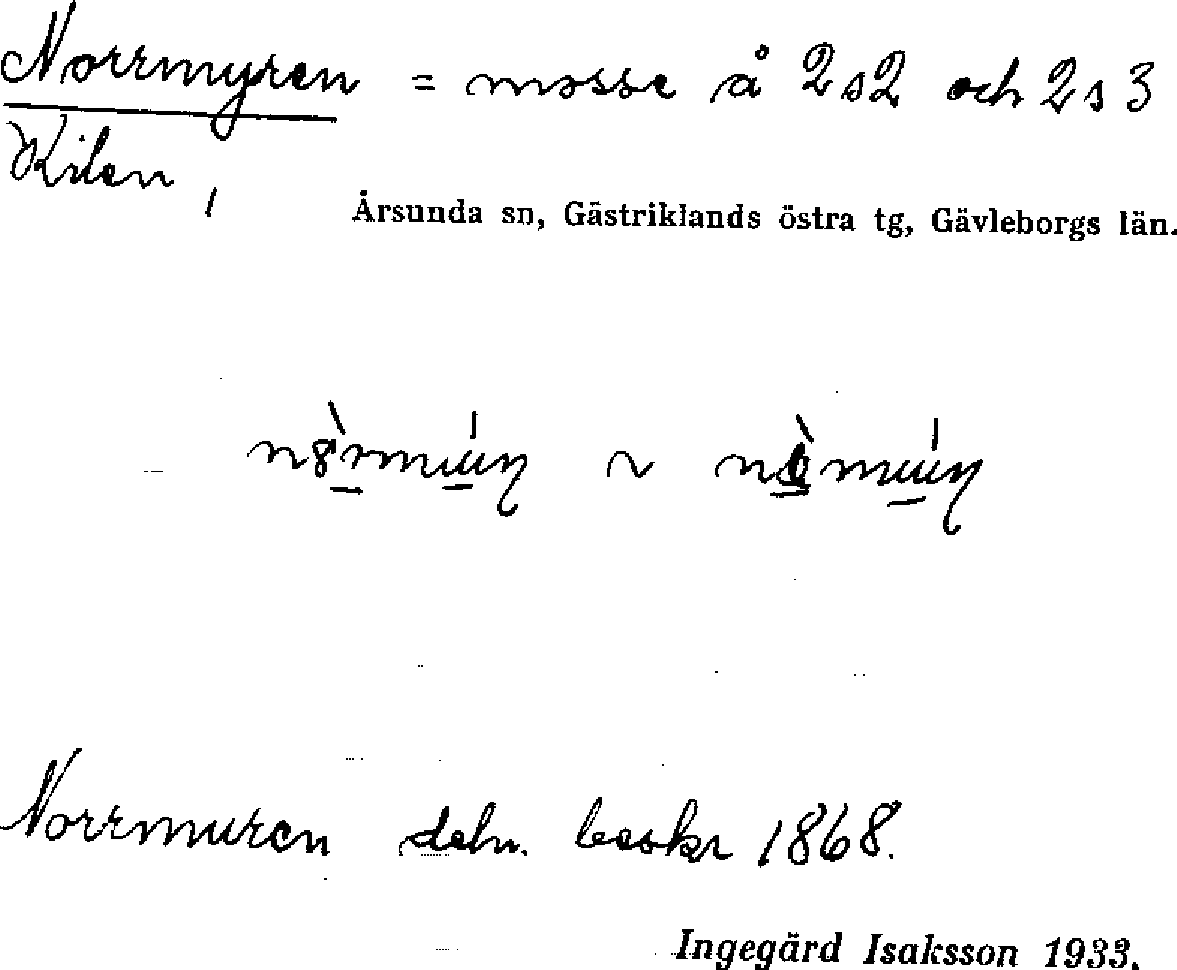 Norrmyren = mosse å 2s2 och 2s3
Kilen,
Årsunda sn, Gästriklands östra tg, Gävleborgs län.
~
Norrmuren deln. beskr 1868.
Ingegärd Isaksson 1933.